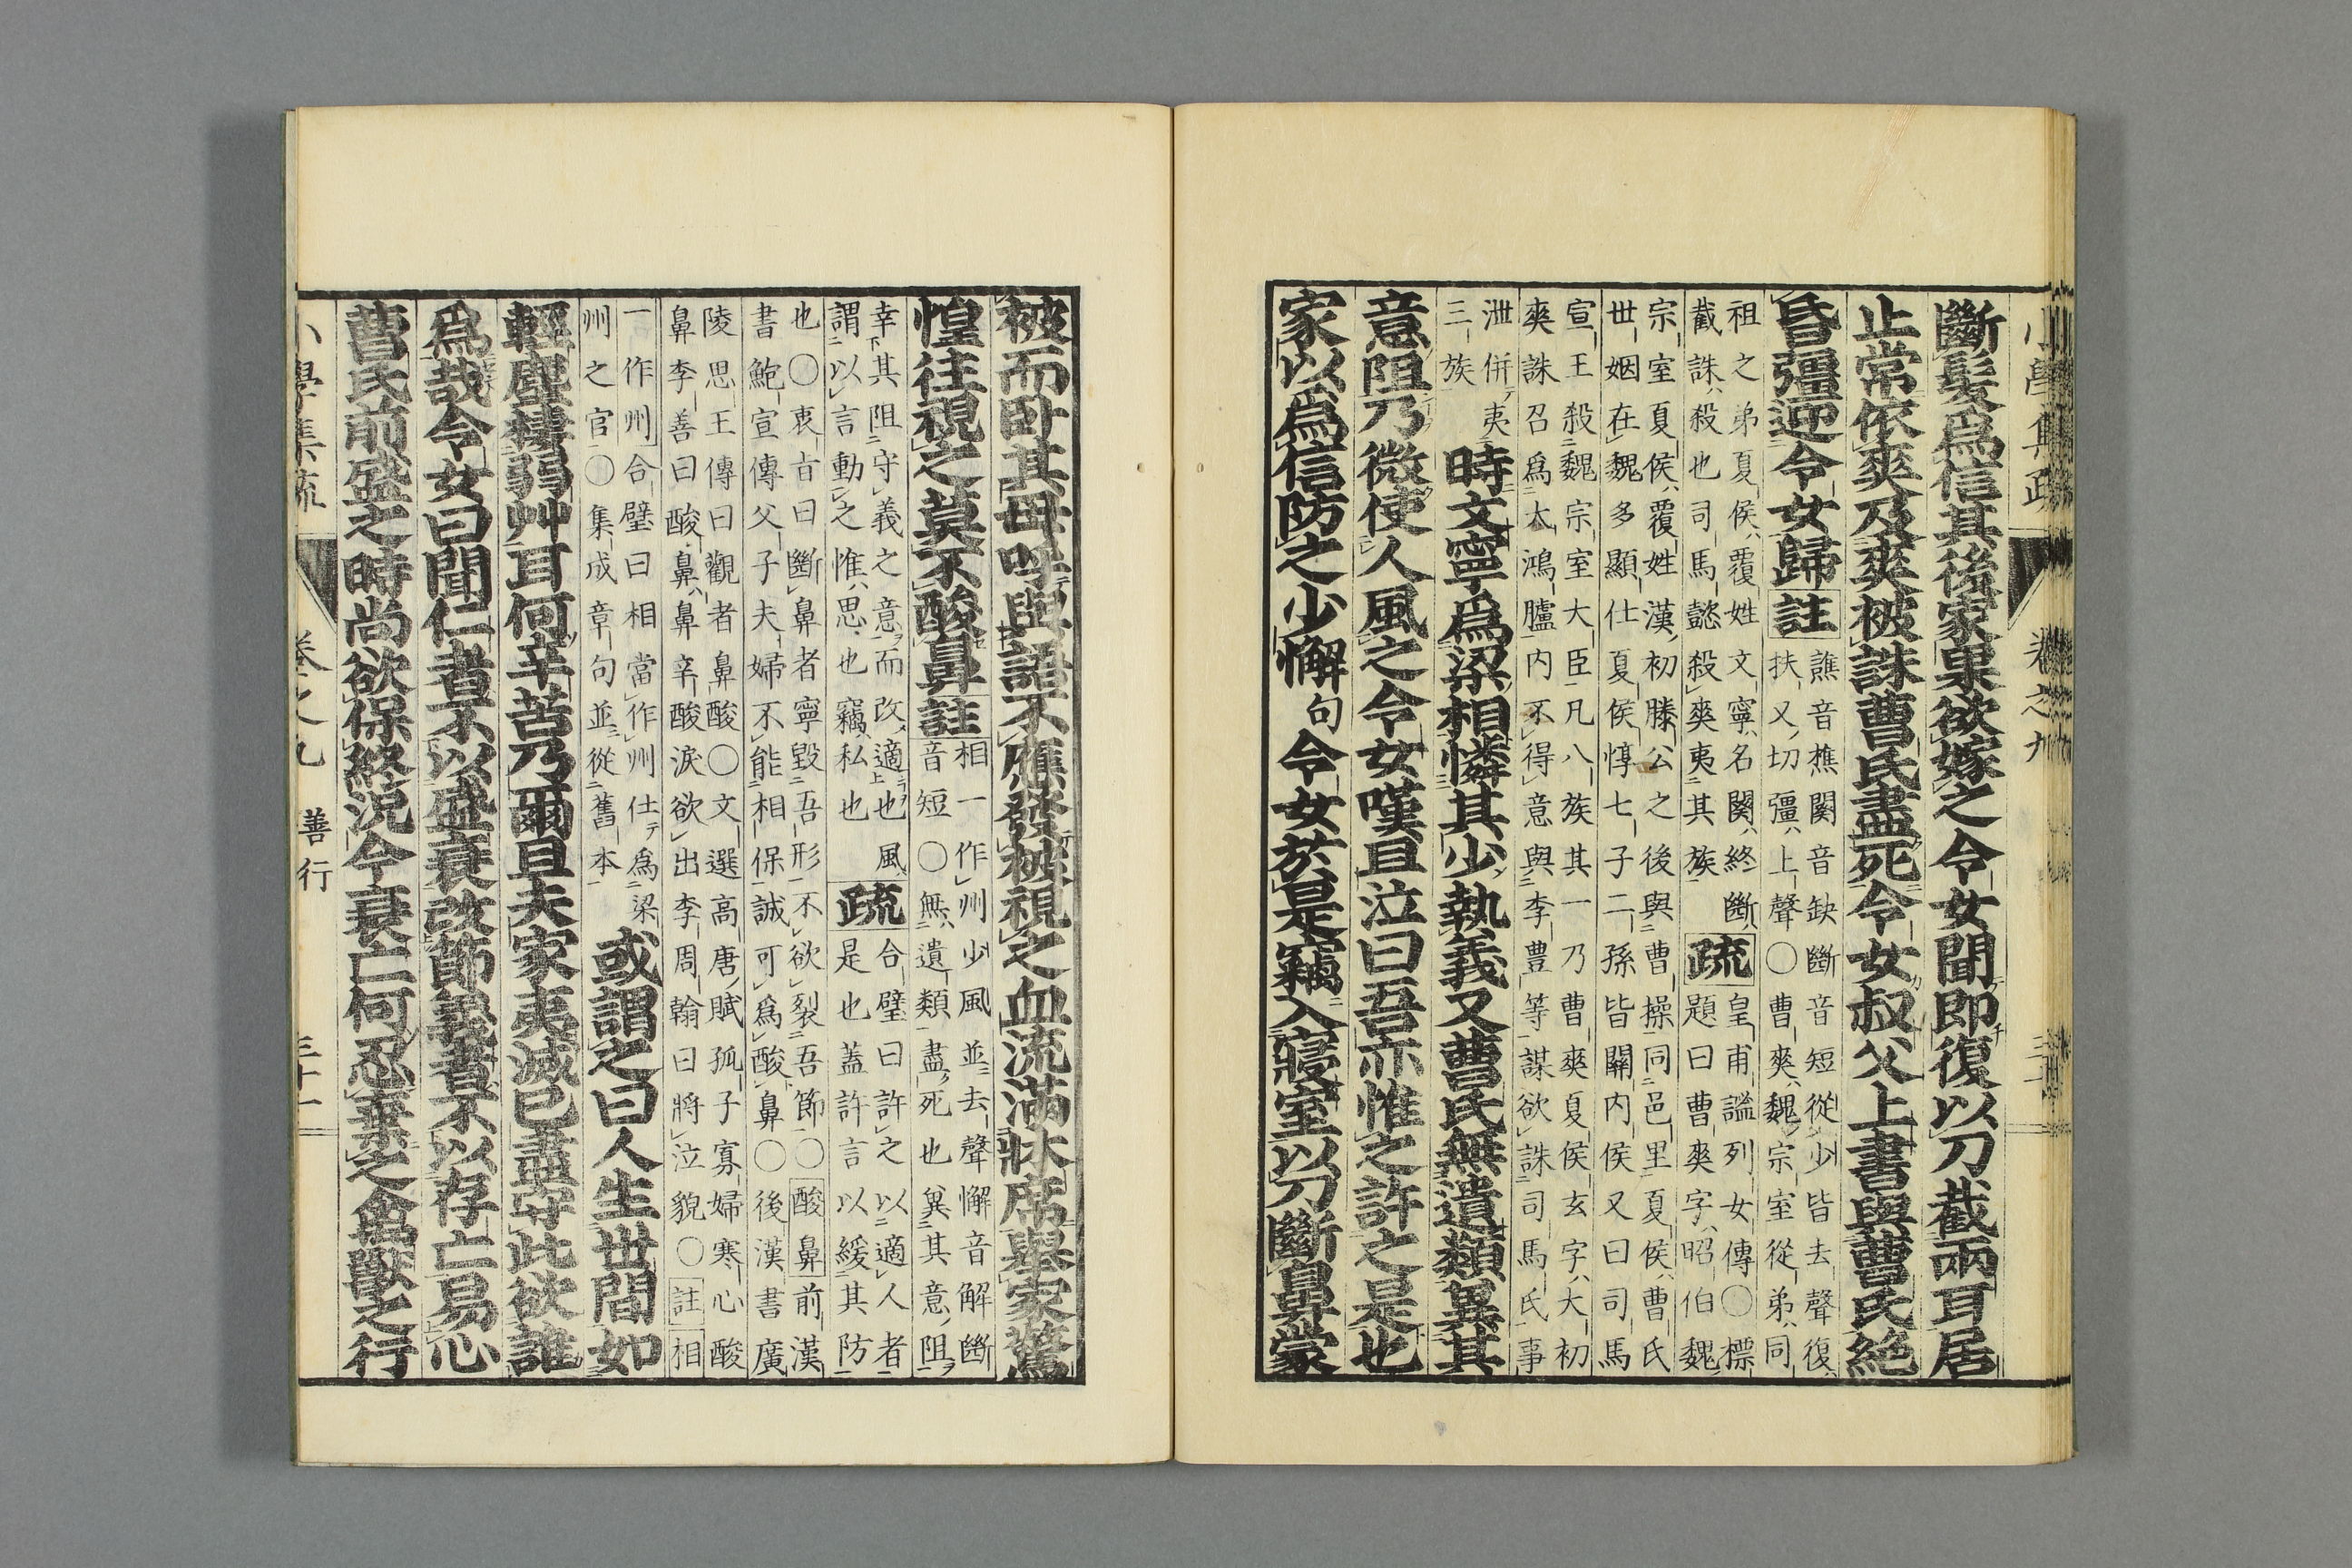 斷髮爲信其後家果欲嫁之令女聞即復以刀截兩耳居
止常依爽及爽被誅曹氏盡死令女叔父上書與曹氏絕
昏彊迎令女歸註
譙音樵闋音缺斷音短從少皆去聲復
扶又切彊上聲〇曹爽魏宗室從弟同
祖之弟夏侯覆姓文寧名闋終斷
截誅殺也司馬懿殺爽夷其族
疏
皇甫謐列女傳〇標
題曰曹爽字昭伯魏
宗室夏侯覆姓漢初滕公之後與曹操同邑里夏侯曹氏
世姻在魏多顯仕夏侯惇七子二孫皆關内侯又曰司馬
宣王殺魏宗室大臣凡八族其一乃曹爽夏侯玄字大初
爽誅召爲大鴻臚内不得意與李豊等謀欲誅司馬氏事
泄併夷
三族
時文寧爲梁相憐其少執義又曹氏無遺類冀其
意阻乃微使人風之令女嘆且泣曰吾亦惟之許之是也
家以爲信防之少懈句令女於是竊入寢室以刀斷鼻蒙
被而臥其母呼與語不應發被視之血流滿牀席舉家驚
惶往視之莫不酸鼻註
相一作州少風並去聲懈音解斷
音短〇無遺類盡死也冀其意阻
幸其阻守義之意而改適也風
謂以言動之惟思也竊私也
疏
合璧曰許之以適人者
是也蓋許言以緩其防
也〇衷㫖曰斷鼻者寧毀吾形不欲裂吾節〇酸鼻前漢
書鮑宣傳父子夫婦不能相保誠可爲酸鼻〇後漢書廣
陵思王傳曰觀者鼻酸〇文選高唐賦孤子寡婦寒心酸
鼻李善曰酸鼻鼻辛酸淚欲出李周翰曰將泣貌〇註相
一作州合璧曰相當作州仕爲梁
州之官〇集成章句並從舊本
或謂之曰人生世間如
輕塵棲弱艸耳何辛苦乃爾且夫家夷滅已盡守此欲誰
爲哉令女曰聞仁者不以盛衰改節義者不以存亡易心
曹氏前盛之時尚欲保終況今衰亡何忍棄之禽獸之行
小學集疏 卷之九 善行 三十一